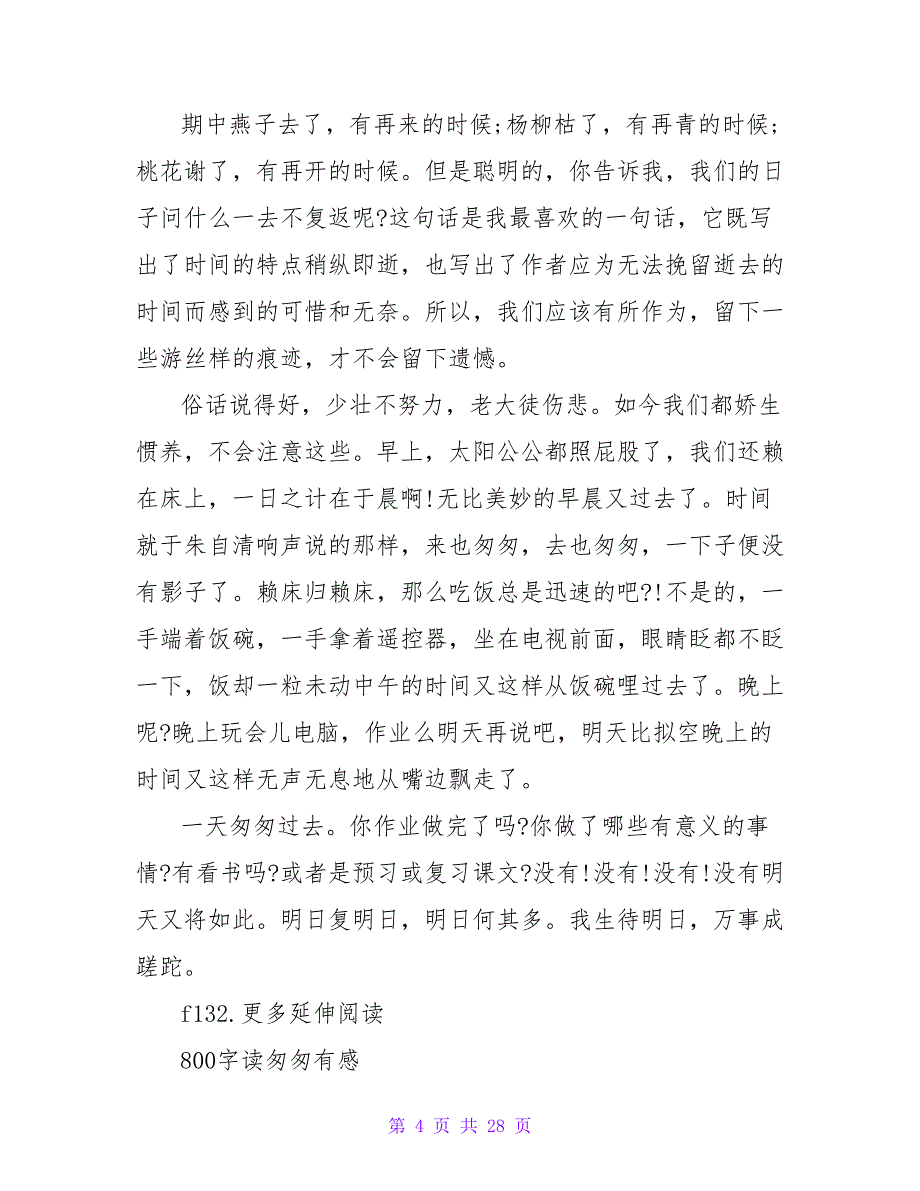 期中燕子去了，有再来的时候;杨柳枯了，有再青的时候;
桃花谢了，有再开的时候。但是聪明的，你告诉我，我们的日
子问什么一去不复返呢?这句话是我最喜欢的一句话，它既写
出了时间的特点稍纵即逝，也写出了作者应为无法挽留逝去的
时间而感到的可惜和无奈。所以，我们应该有所作为，留下一
些游丝样的痕迹，才不会留下遗憾。
俗话说得好，少壮不努力，老大徒伤悲。如今我们都娇生
惯养，不会注意这些。早上，太阳公公都照屁股了，我们还赖
在床上，一日之计在于晨啊!无比美妙的早晨又过去了。时间
就于朱自清响声说的那样，来也匆匆，去也匆匆，一下子便没
有影子了。赖床归赖床，那么吃饭总是迅速的吧?!不是的，一
手端着饭碗，一手拿着遥控器，坐在电视前面，眼睛眨都不眨
一下，饭却一粒未动中午的时间又这样从饭碗哩过去了。晚上
呢?晚上玩会儿电脑，作业么明天再说吧，明天比拟空晚上的
时间又这样无声无息地从嘴边飘走了。
一天匆匆过去。你作业做完了吗?你做了哪些有意义的事
情?有看书吗?或者是预习或复习课文?没有!没有!没有!没有明
天又将如此。明日复明日，明日何其多。我生待明日，万事成
蹉跎。
f132.更多延伸阅读
800字读匆匆有感
第 4 页 共 28 页